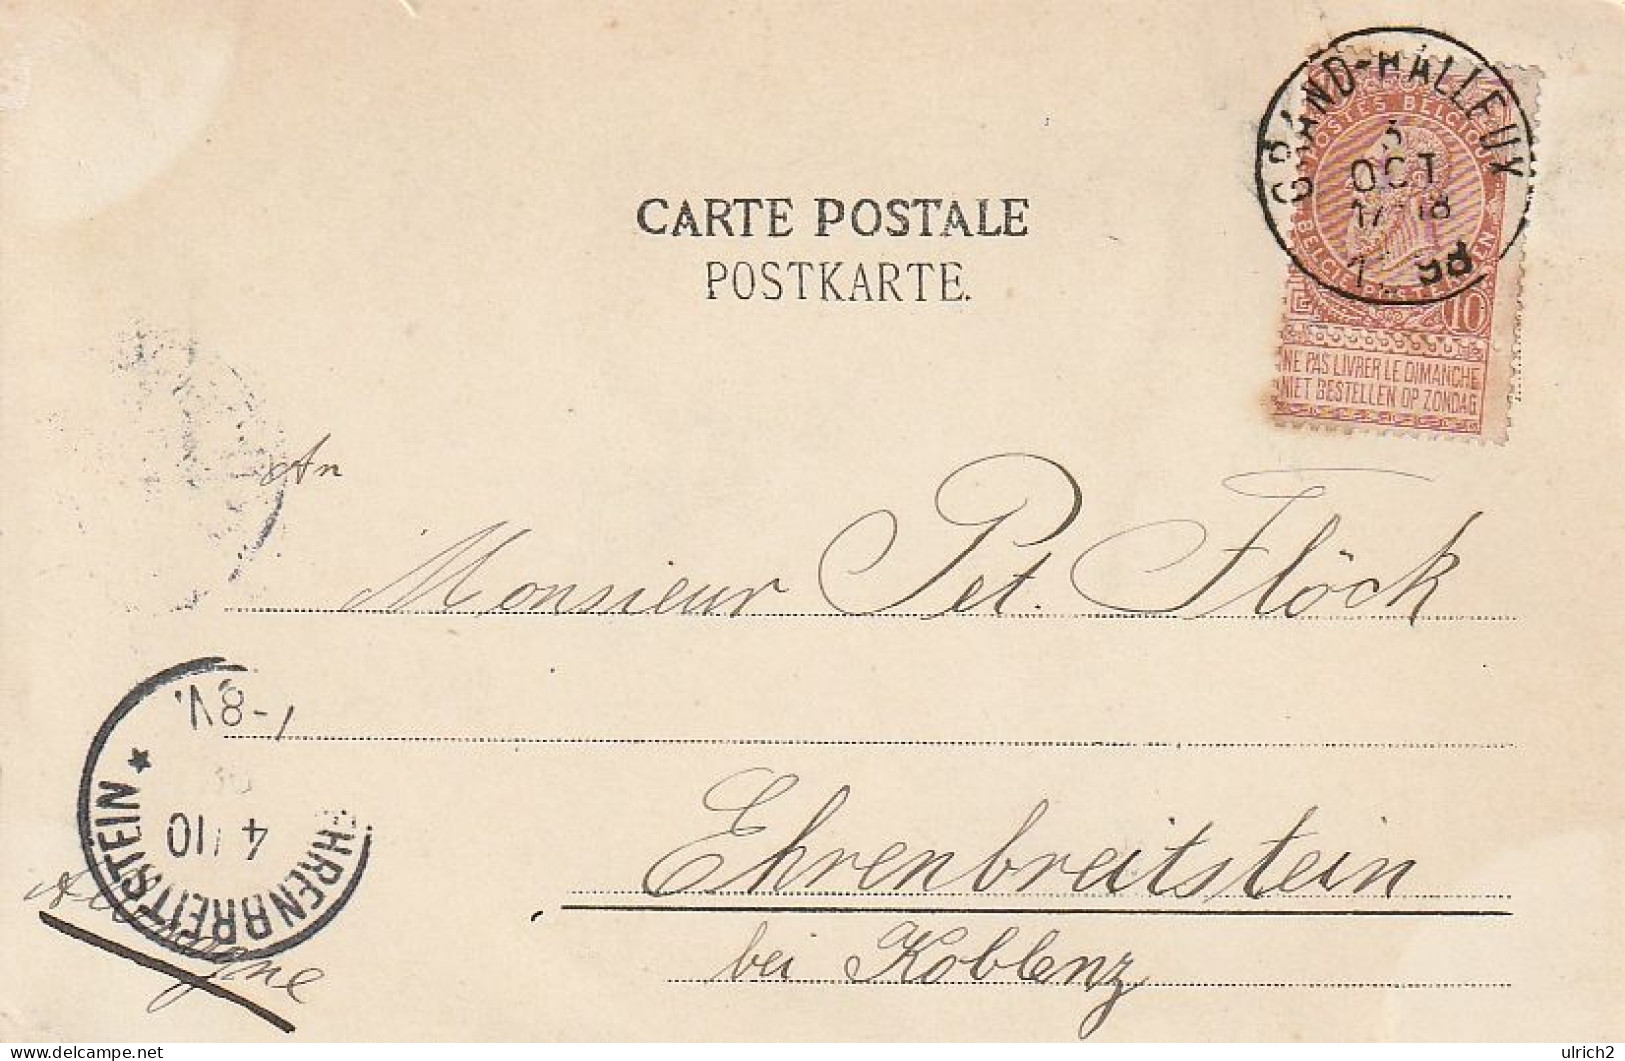 CARTE POSTALE
POSTKARTE.
GRAND-HALLEUX
3
OCT
17-18
98
POSTES BELGIQUE
BELGIE POSTERIJEN
10
NE PAS LIVRER LE DIMANCHE
NIET BESTELLEN OP ZONDAG
An
Monsieur Pet. Flöck
Ehrenbreitstein
bei Koblenz
Allemagne
EHRENBREITSTEIN *
4/10
7-8V.
ulrich2